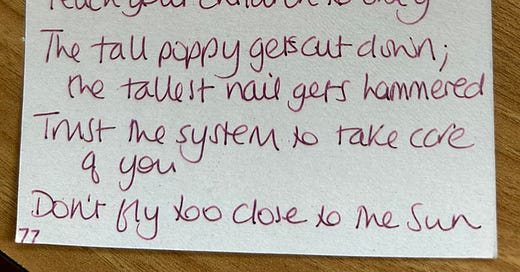 Teach your children to obey
The tall poppy gets cut down;
the tallest nail gets hammered
Trust the system to take care
of you
Don't fly too close to the sun
77